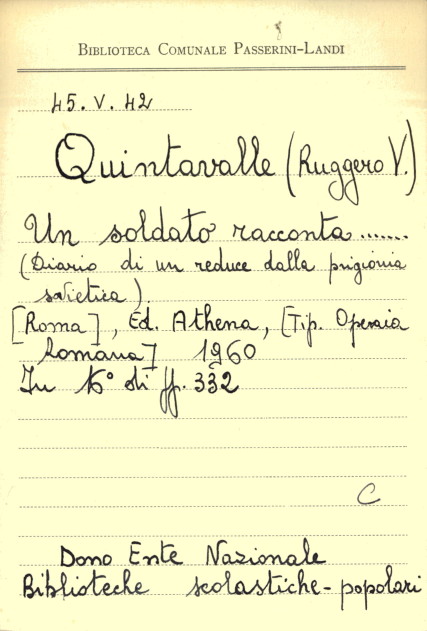 BIBLIOTECA COMUNALE PASSERINI-LANDI
45. V. 42
Quintavalle (Ruggero V.)
Un soldato racconta.......
(Diario di un reduce dalla prigionia
sovietica)
[Roma], Ed. Athena, [Tip. Operaia
Romana] 1960
In 16° di ff. 332
C
Dono Ente Nazionale
Biblioteche scolastiche-popolari